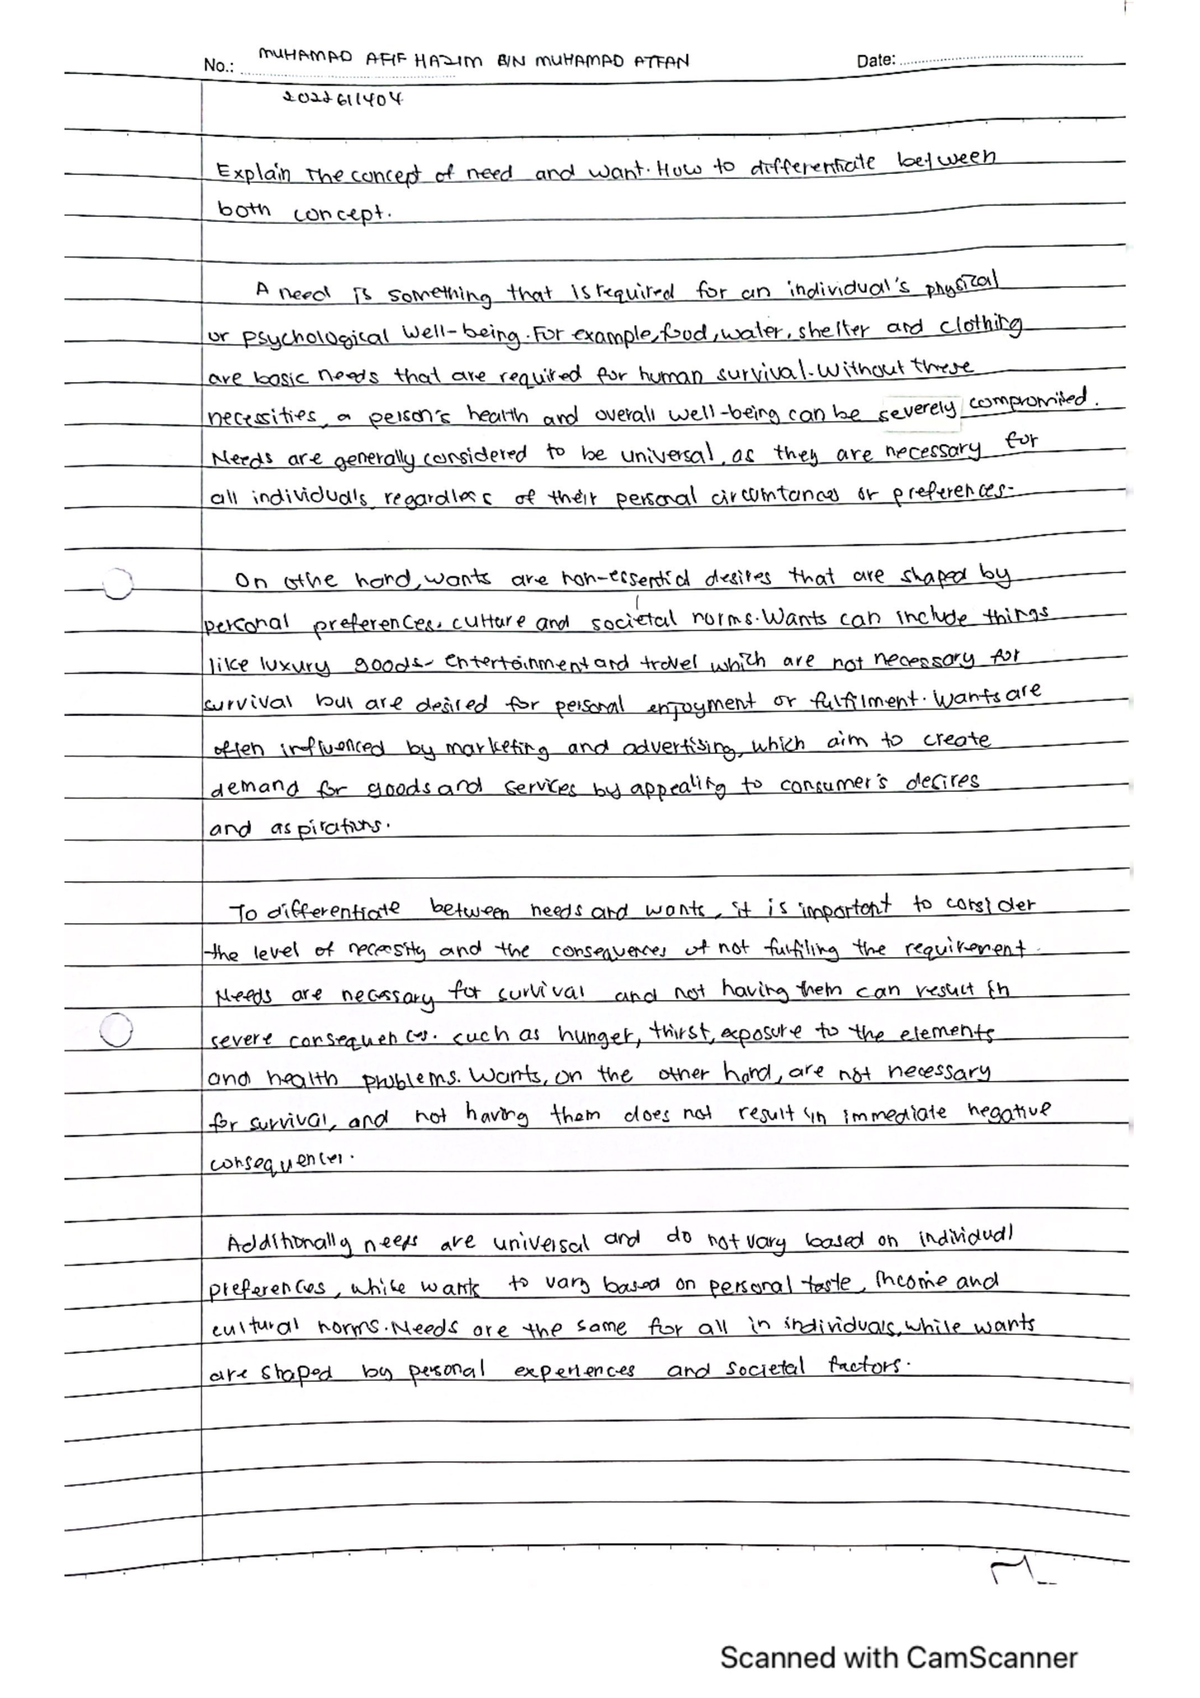 No.: MUHAMAD AFIF HAZIM BIN MUHAMAD ATFAN Date:
2022611404
Explain the concept of need and want. How to differentiate between
both concept.
A need is something that is required for an individual's physical
or psychological well-being. For example, food, water, shelter and clothing
are basic needs that are required for human survival. Without these
necessities, a person's health and overall well-being can be severely compromised.
Needs are generally considered to be universal, as they are necessary for
all individuals, regardless of their personal circumtances or preferences.
On othe hand, wants are non-essential desires that are shaped by
personal preferences, culture and societal norms. Wants can include things
like luxury goods, entertainment and travel which are not necessary for
survival but are desired for personal enjoyment or fulfilment. Wants are
often influenced by marketing and advertising, which aim to create
demand for goods and services by appealing to consumer's desires
and aspirations.
To differentiate between needs and wants, it is important to consider
the level of necessity and the consequences of not fulfiling the requirement.
Needs are necessary for survival and not having them can result in
severe consequences. such as hunger, thirst, exposure to the elements
and health problems. Wants, on the other hand, are not necessary
for survival, and not having them does not result in immediate negative
consequences.
Additionally needs are universal and do not vary based on individul
preferences, while wants to vary based on personal taste, income and
cultural norms. Needs are the same for all in individuals, while wants
are shaped by personal experiences and societal factors.
Scanned with CamScanner